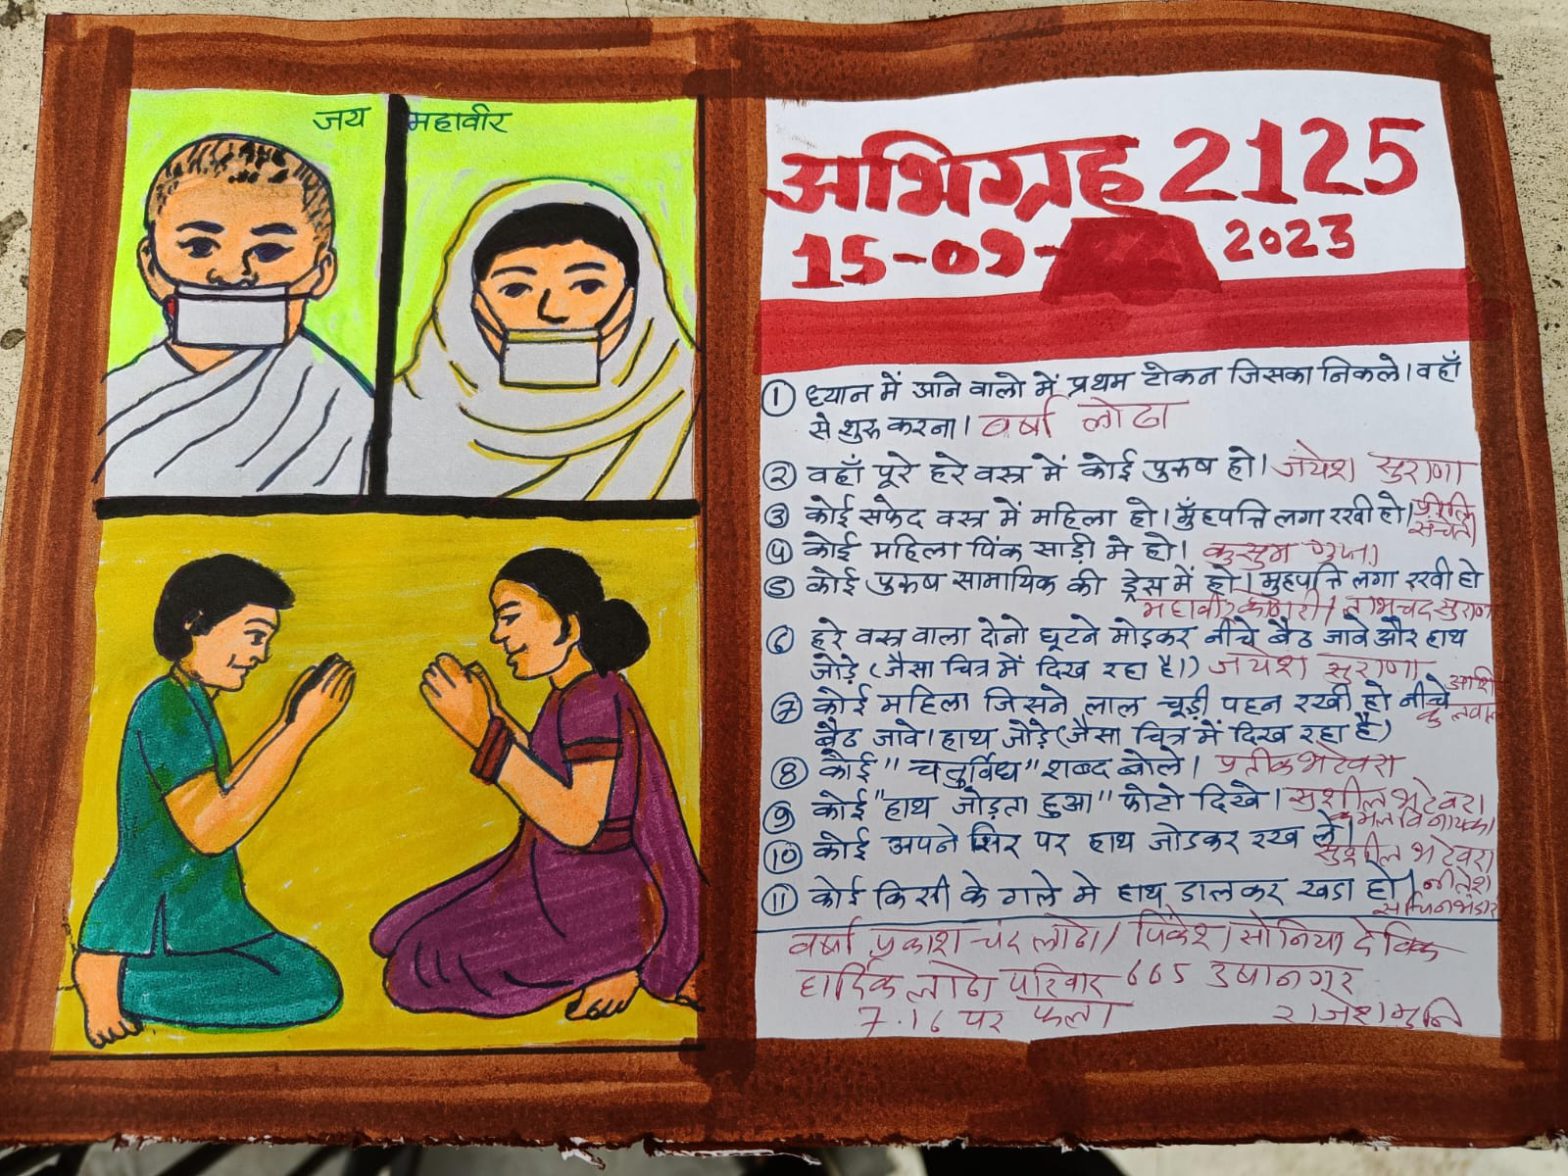 जय महावीर
अभिग्रह 2125
15-09-2023
① ध्यान में आने वालो में प्रथम टोकन जिसका निकले। वहाँ
से शुरू करना। वर्षा लोढा
② वहाँ पूरे हरे वस्त्र में कोई पुरुष हो। जयेश सुराणा
③ कोई सफेद वस्त्र में महिला हो। मुँहपत्ति लगा रखी हो।
④ कोई महिला पिंक साड़ी मे हो। कुसुम गुप्ता
⑤ कोई पुरुष सामायिक की ड्रेस में हो। मुहपत्ति लगा रखी हो
⑥ हरे वस्त्र वाला दोनो घूटने मोड़कर नीचे बैठ जावे और हाथ
जोड़े (जैसा चित्र में दिख रहा है।) जयेश सुराणा
⑦ कोई महिला जिसने लाल चूड़ी पहन रखी हो नीचे
बैठ जावे। हाथ जोड़े (जैसा चित्र में दिख रहा है)
⑧ कोई "चतुर्विध" शब्द बोले। प्रतीक भटेवरा
⑨ कोई "हाथ जोड़ता हुआ" फोटो दिखे। सुशील भटेवरा
⑩ कोई अपने सिर पर हाथ जोडकर रख ले। सुशील भटेवरा
⑪ कोई किसी के गाले मे हाथ डालकर खडा हो।
वर्षा प्रकाश चंद लोढा / पिंकेश / सोनिया देविक
हार्दिक लोढा परिवार 665 उषानगर
7.16 पर फला राजेश मुनि